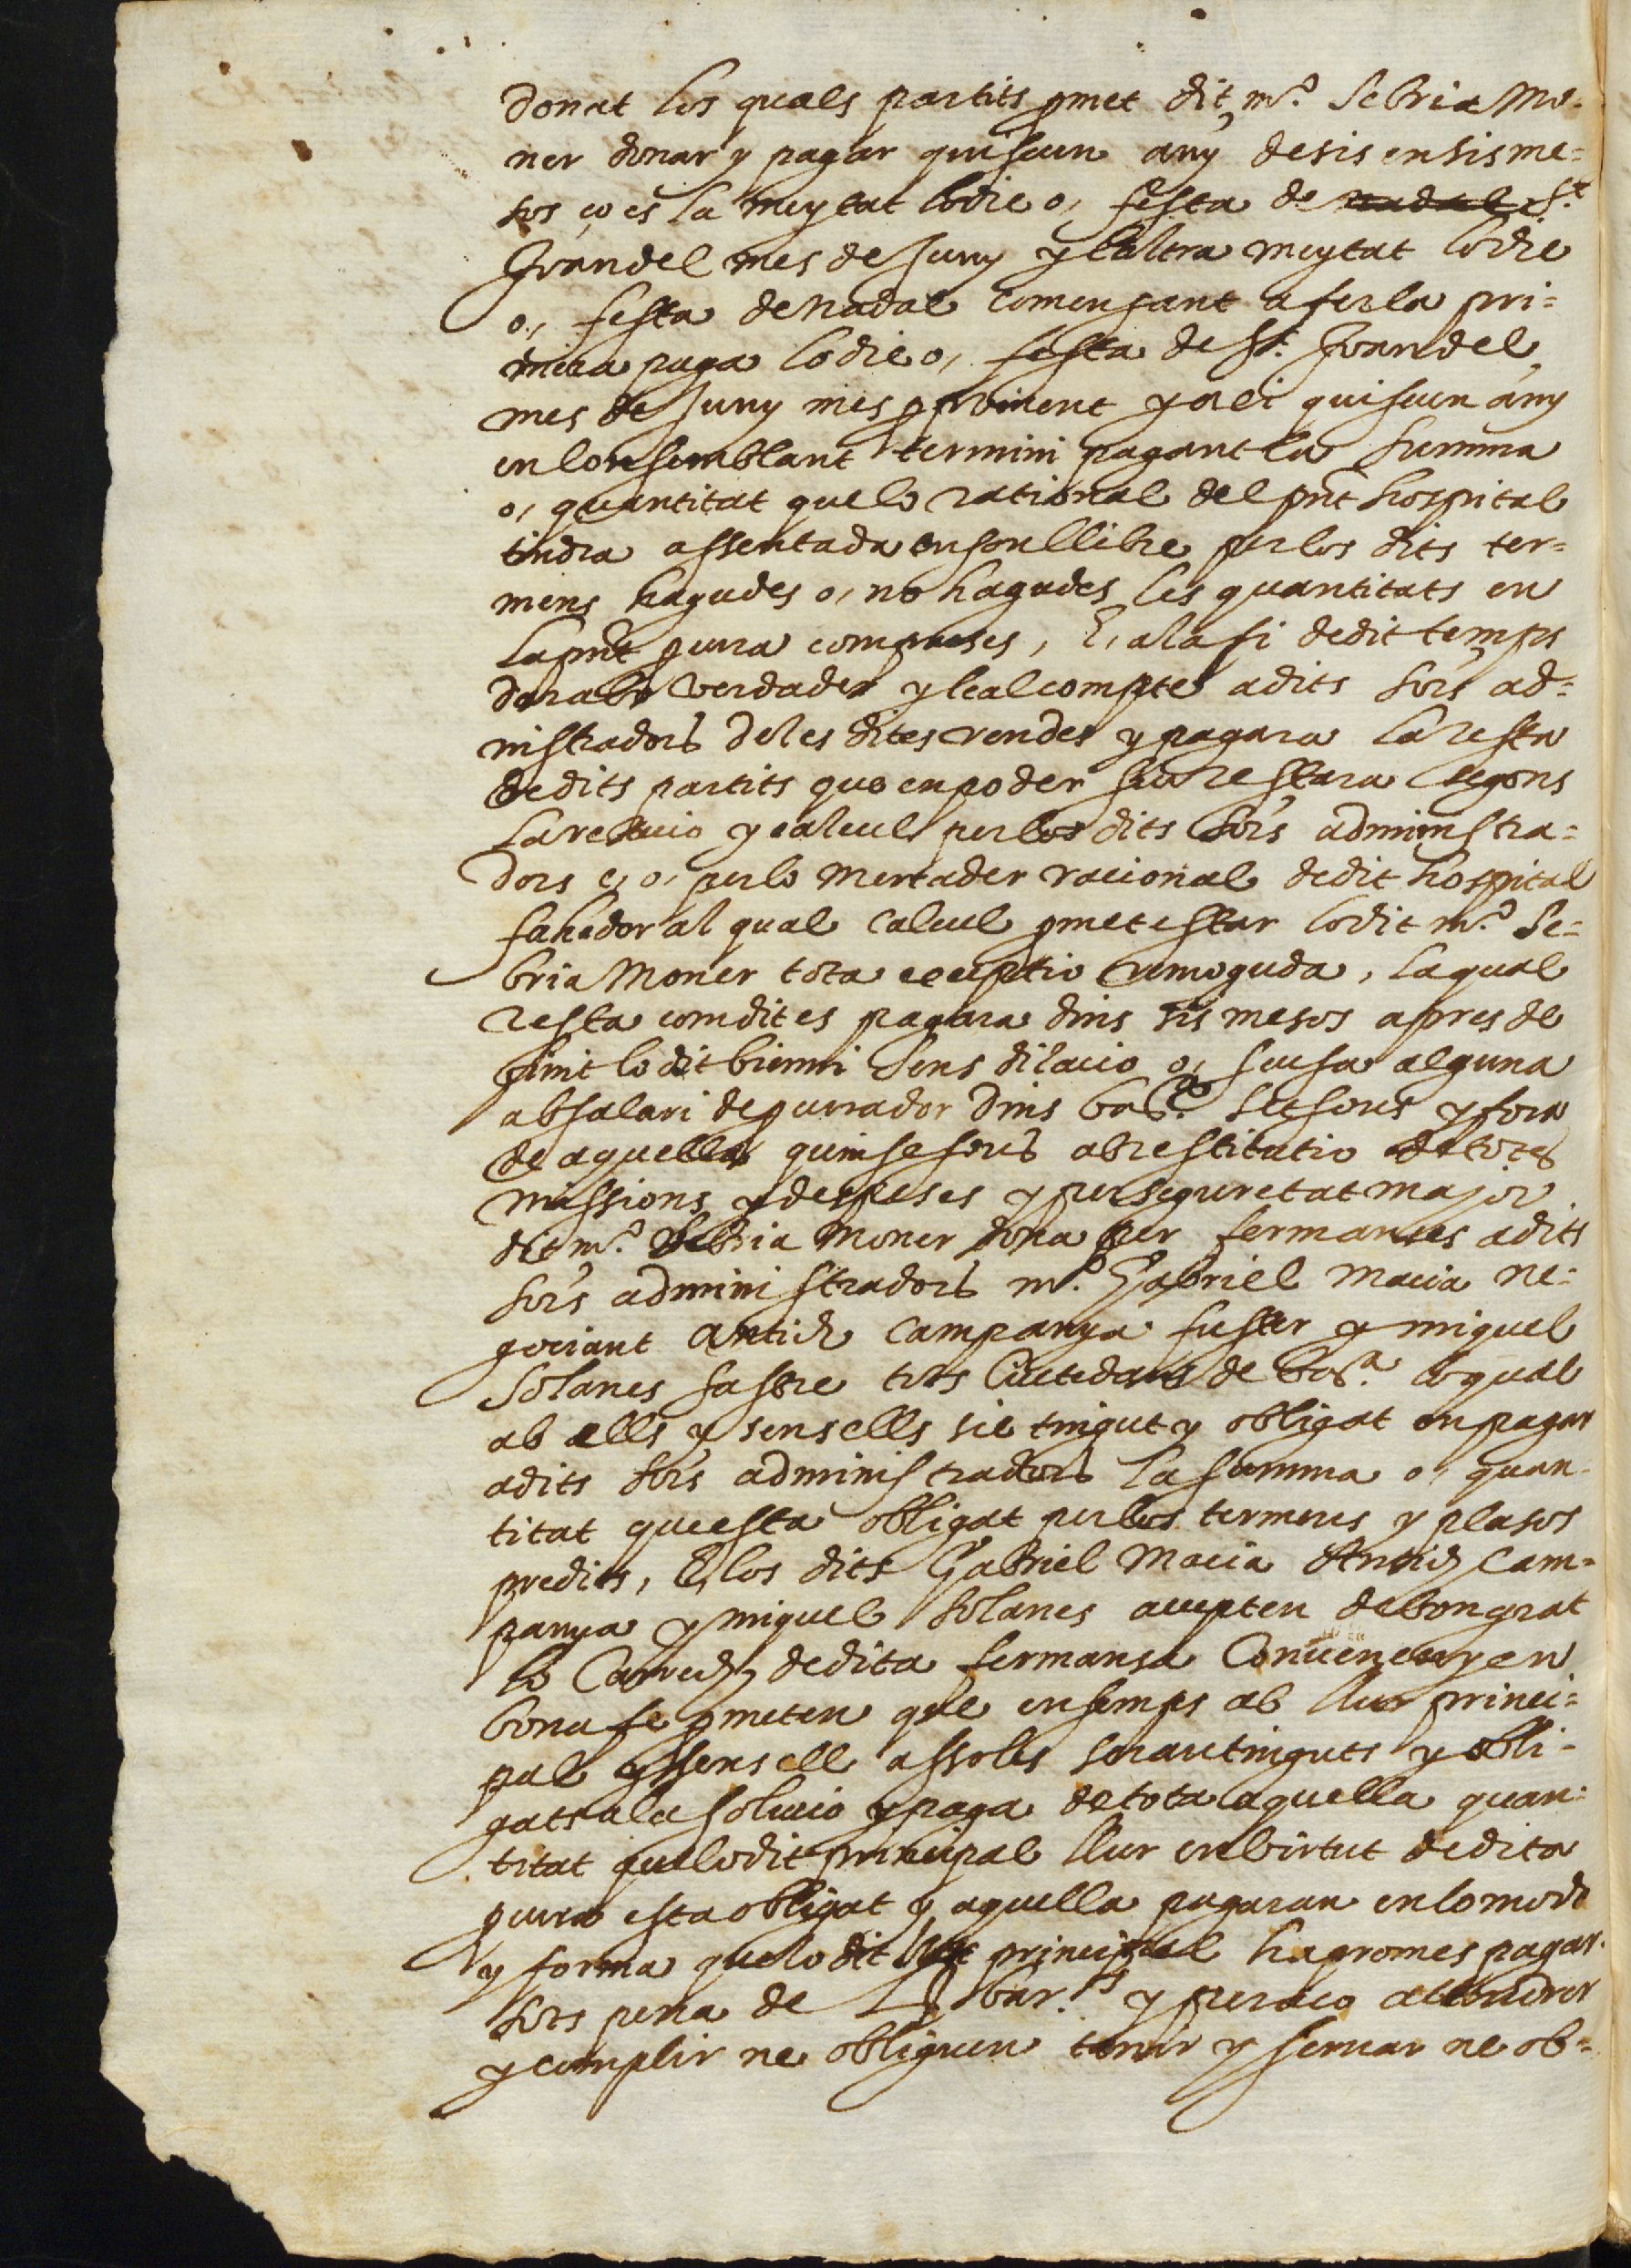 donat los quals partits ꝓmet dit mᵒ. Sebria Mo-
ner donar y pagar quiscun any de sis en sis me=
sos ço es la meytat lo die o, festa de nadal Sᵗ.
Joan del mes de Juny y laltra meytat lo die
o, festa de Nadal comensant a fer la pri=
mera paga lo die o, festa de Sᵗ. Joan del
mes de Juny mes ꝓ vinent y axi quiscun any
en lo semblant termini pagant la summa
o, quantitat que lo rational del pnt hospital
tindra assentada en son llibre per los dits ter=
mens hagudes o, no hagudes les quantitats en
la pnt ꝓcura compreses, E, a la fi de dit temps
donara verdader y leal compte a dits Sors ad=
nistradors de les dites rendes y pagara la resta
de dits partits que en poder seu restara segons
la relacio y calcul per los dits Sors administra=
dors e, o, per lo mercader racional de dit hospital
fahedor al qual calcul ꝓmet estar lo dit mᵒ. Se=
bria Moner tota exceptio remoguda, la qual
resta com dit es pagara dins sis mesos apres de
finit lo dit bienni sens dilacio o, scusa alguna
ab salari de ꝓcurador dins barᵃ. set sous y fora
de aquella quinse sous ab restitutio de totes
missions y despeses y per seguretat major
dit mᵒ. Sebria Moner dona per fermanses a dits
Sors administradors mᵒ. Gabriel Macia ne=
gociant Antich Campanya fuster y Miquel
Solanes sastre tots Ciutedans de barᵃ. lo qual
ab ells y sens ells sie tingut y obligat en pagar
a dits Sors administradors la summa o, quan-
titat que esta obligat per los termens y plasos
predits, E, los dits Gabriel Macia Antich Cam=
panya y Miquel Solanes accepten de bon grat
lo Carrech de dita fermansa Convenen y en
bona fe ꝓmeten que ensemps ab llur princi=
pal y sens ell assoles seran tinguts y obli-
gats a la solucio y paga de tota aquella quan=
titat que lo dit principal llur en virtut de dita
ꝓcura esta obligat y aquella pagaran en lo modo
y forma que lo dit llur principal ha promes pagar
sots pena de L ll barˢ. y per aço attendrer
y complir ne obliguen tenir y servar ne ob=